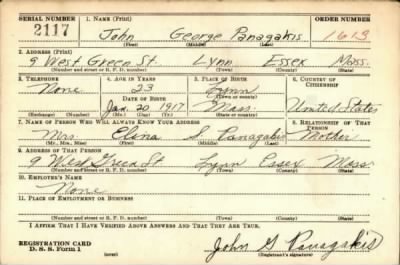 SERIAL NUMBER 1. NAME (Print) ORDER NUMBER
2117 John George Panagakis 1613
(First) (Middle) (Last)
2. ADDRESS (Print)
9 West Green St. Lynn Essex Mass.
(Number and street or R. F. D. number) (Town) (County) (State)
3. TELEPHONE 4. AGE IN YEARS 5. PLACE OF BIRTH 6. COUNTRY OF CITIZENSHIP
None 23 Lynn
DATE OF BIRTH (Town or county)
Jan. 20 1917 Mass. United States
(Exchange) (Number) (Mo.) (Day) (Yr.) (State or country)
7. NAME OF PERSON WHO WILL ALWAYS KNOW YOUR ADDRESS 8. RELATIONSHIP OF THAT PERSON
Mrs. Elena S Panagakis Mother
(Mr., Mrs., Miss) (First) (Middle) (Last)
9. ADDRESS OF THAT PERSON
9 West Green St Lynn Essex Mass.
(Number and street or R. F. D. number) (Town) (County) (State)
10. EMPLOYER'S NAME
None
11. PLACE OF EMPLOYMENT OR BUSINESS
(Number and street or R. F. D. number) (Town) (County) (State)
I AFFIRM THAT I HAVE VERIFIED ABOVE ANSWERS AND THAT THEY ARE TRUE.
REGISTRATION CARD
D. S. S. Form 1 John G Panagakis
(over) (Registrant's signature)